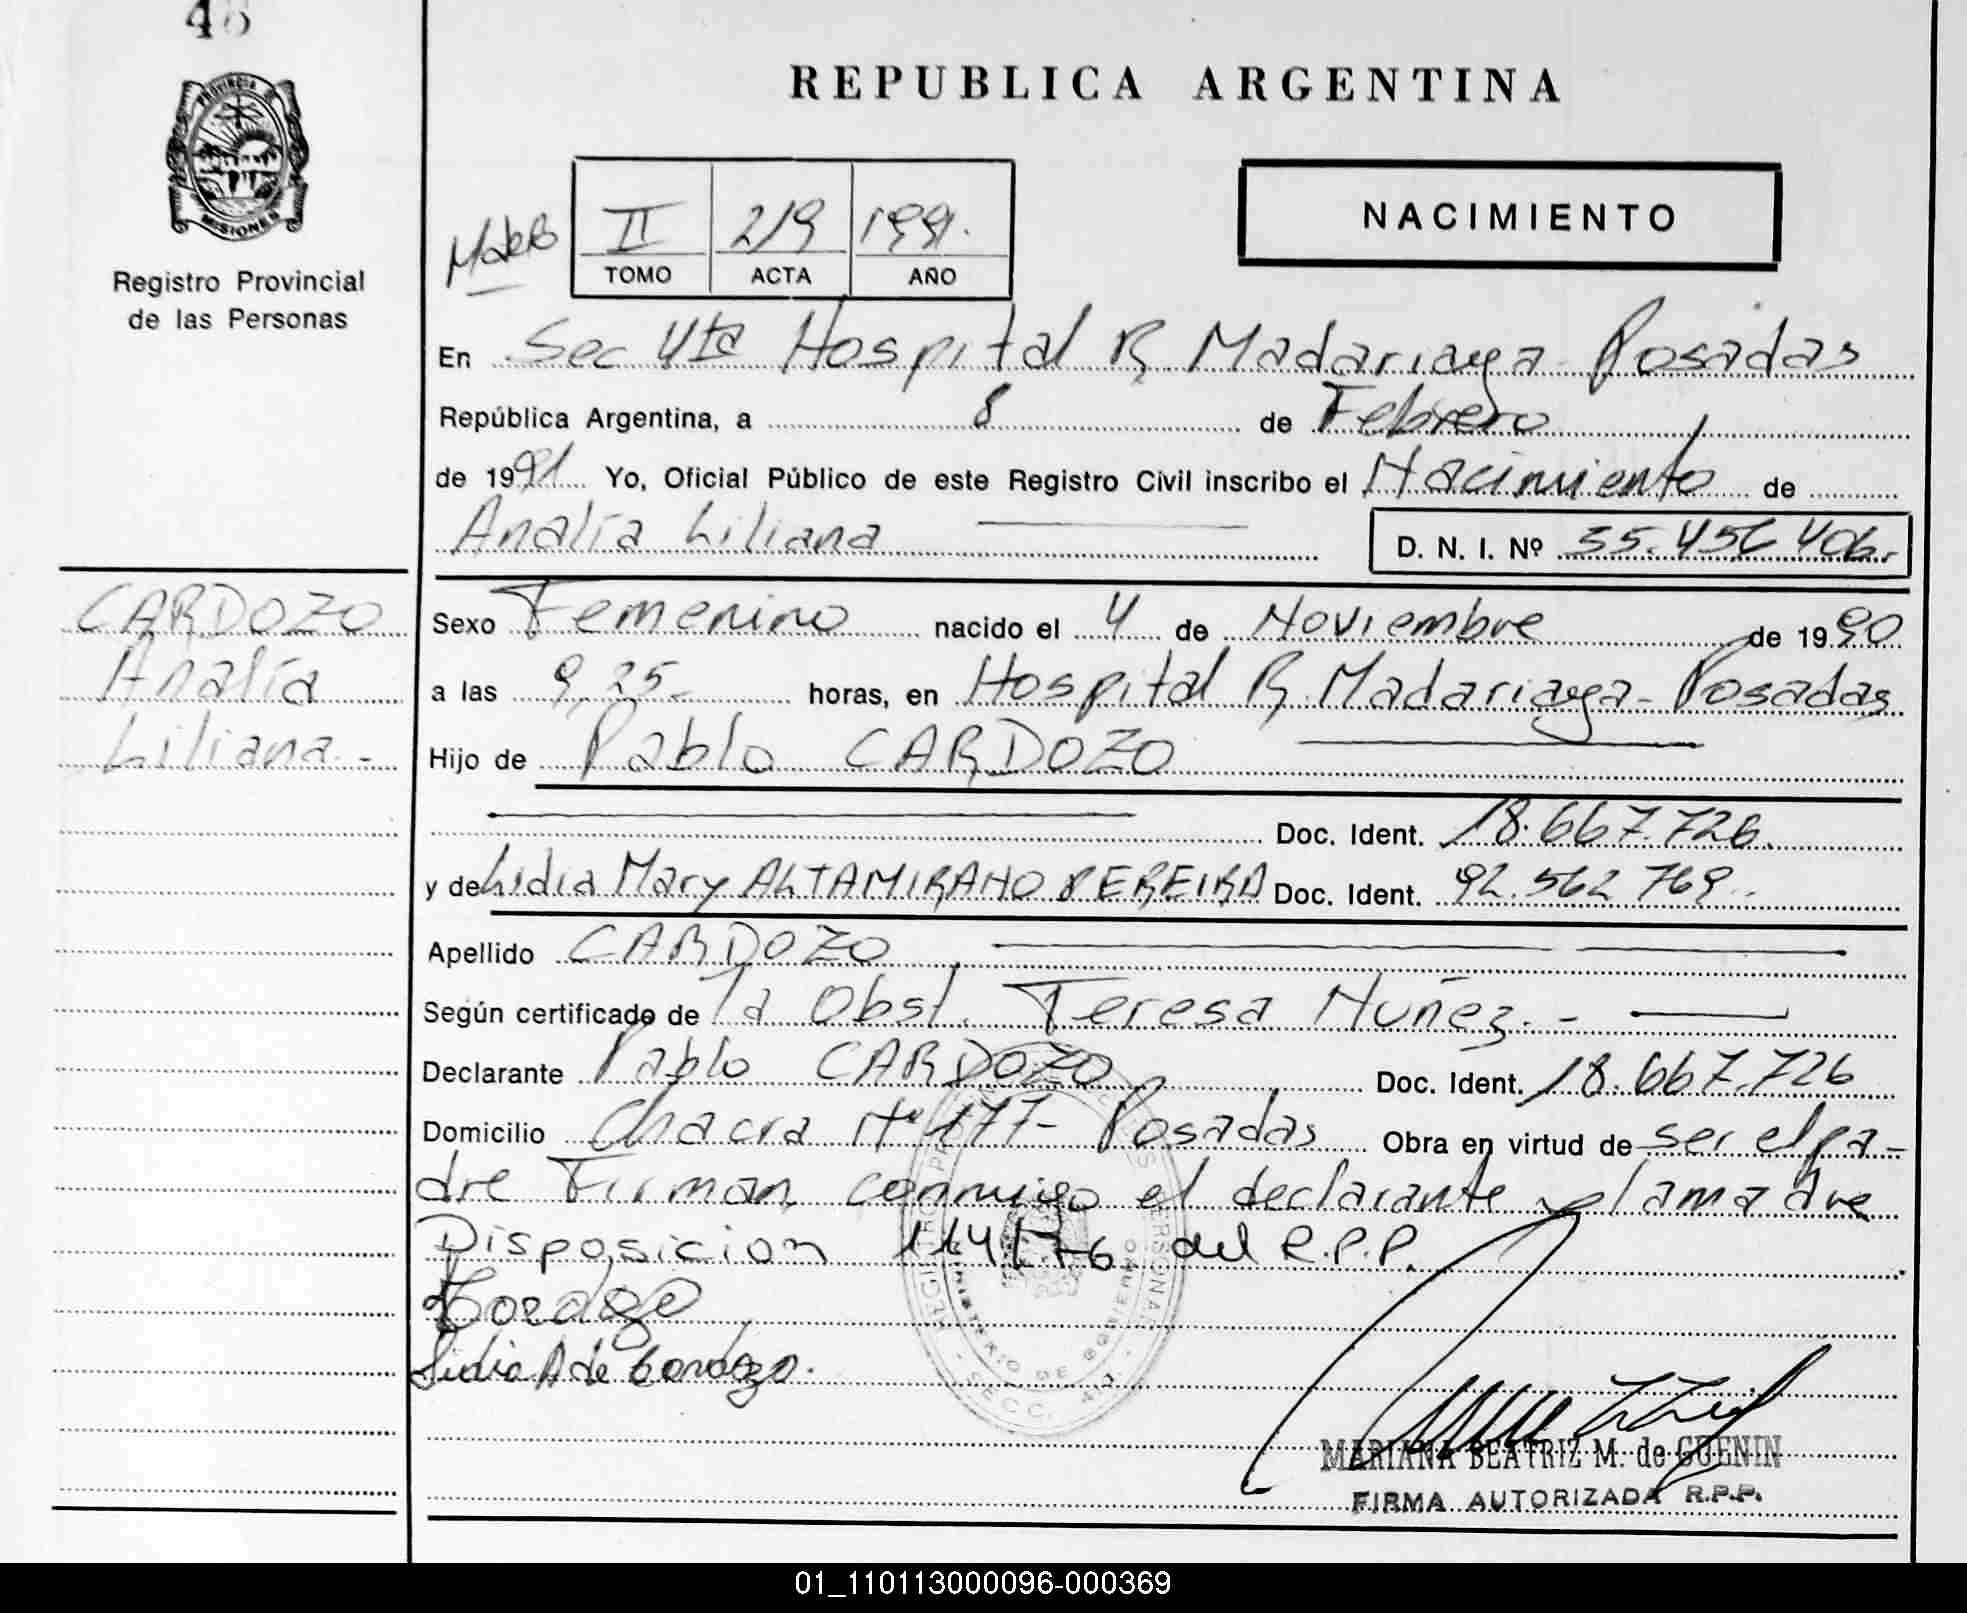 48
PROVINCIA DE
MISIONES
Registro Provincial
de las Personas
REPUBLICA ARGENTINA
II 219 1991.
TOMO ACTA AÑO
NACIMIENTO
En Sec 4ta Hospital R. Madariaga - Posadas
República Argentina, a 8 de Febrero
de 1991 Yo, Oficial Público de este Registro Civil inscribo el Nacimiento de
Analía Liliana
D. N. I. Nº 35.456.406.-
CARDOZO
Analía
Liliana.-
Sexo Femenino nacido el 4 de Noviembre de 1990
a las 9,25.- horas, en Hospital R. Madariaga - Posadas
Hijo de Pablo CARDOZO
Doc. Ident. 18.667.726.
y de Lidia Mary ALTAMIRANO PEREIRA Doc. Ident. 92.562.769.
Apellido CARDOZO
Según certificado de la Obst. Teresa Nuñez.-
Declarante Pablo CARDOZO Doc. Ident. 18.667.726
Domicilio Chacra Nº 177- Posadas Obra en virtud de ser el pa-
dre Firman conmigo el declarante y la madre
Disposicion 114/76 del R.P.P.
Cardozo
Lidia A de Cardozo.
MINISTERIO DE GOBIERNO
SECC. 4ta.
MARIANA BEATRIZ M. de GUENIN
FIRMA AUTORIZADA R.P.P.
01_110113000096-000369